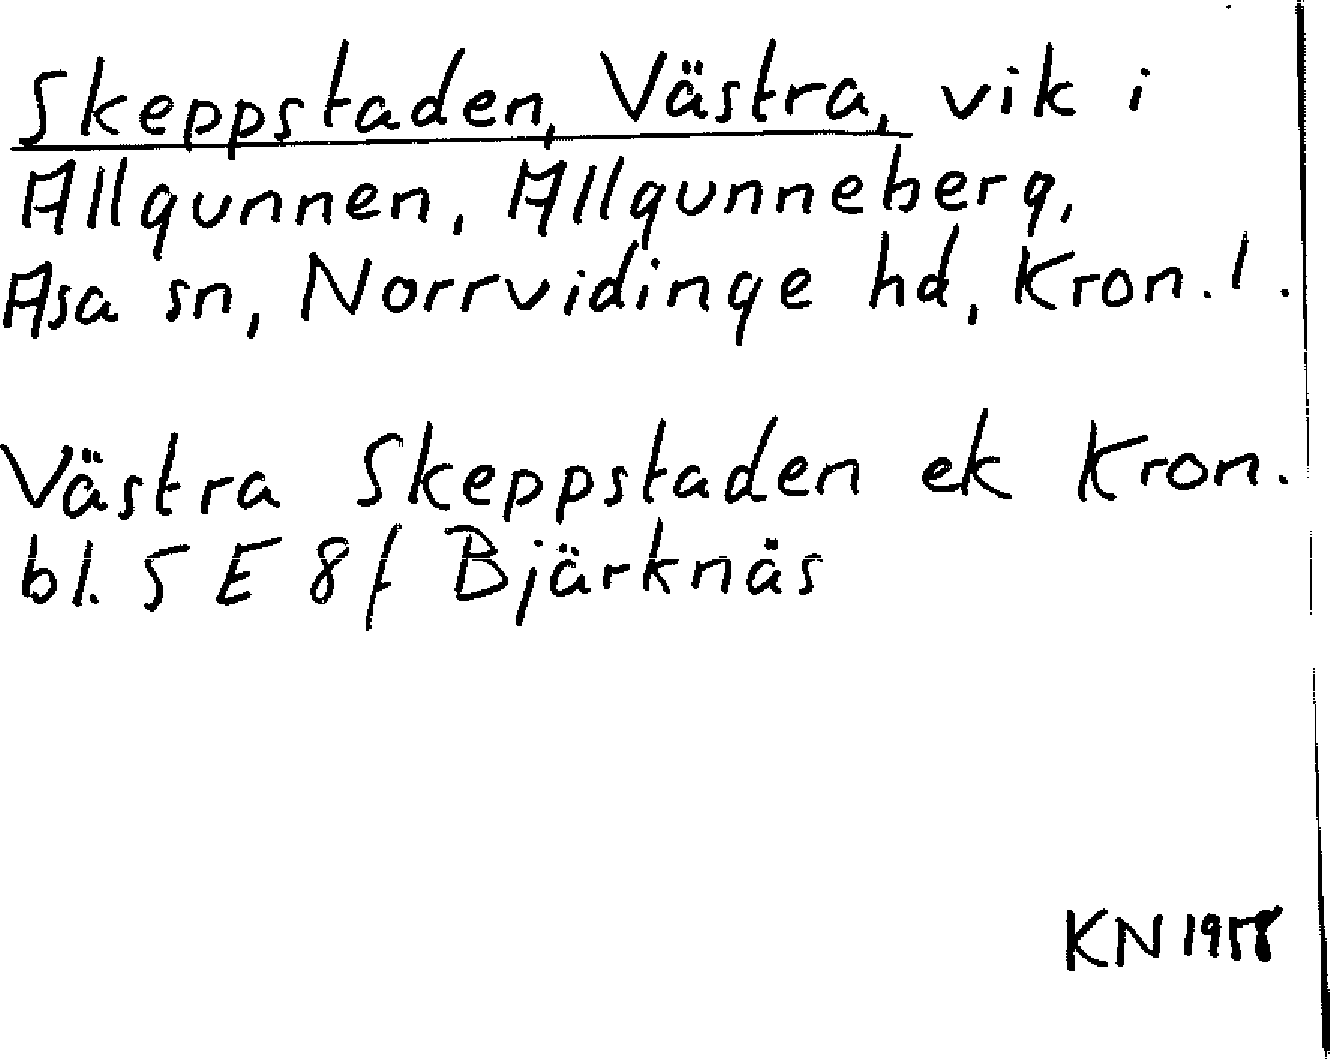 Skeppstaden, Västra, vik i
Allgunnen, Allgunneberg,
Asa sn, Norrvidinge hd, Kron. l.
Västra Skeppstaden ek Kron.
bl. 5 E 8f Bjärknäs
KN 1958